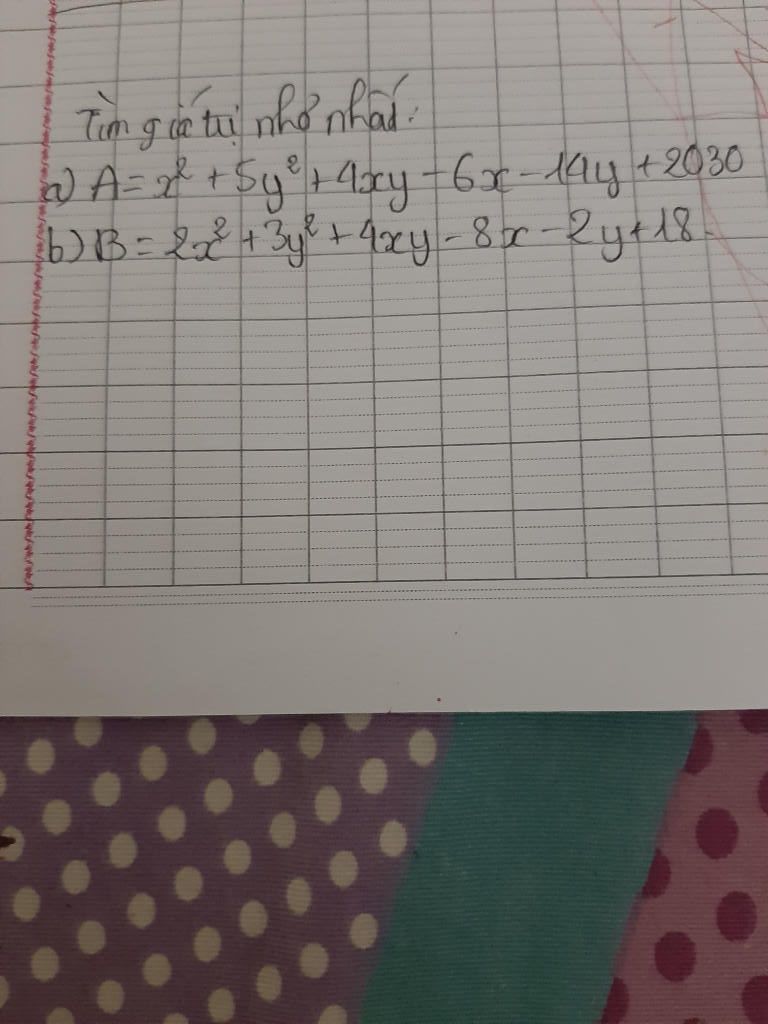 Tìm giá trị nhỏ nhất:
a) A = x² + 5y² + 4xy - 6x - 14y + 2030
b) B = 2x² + 3y² + 4xy - 8x - 2y + 18.